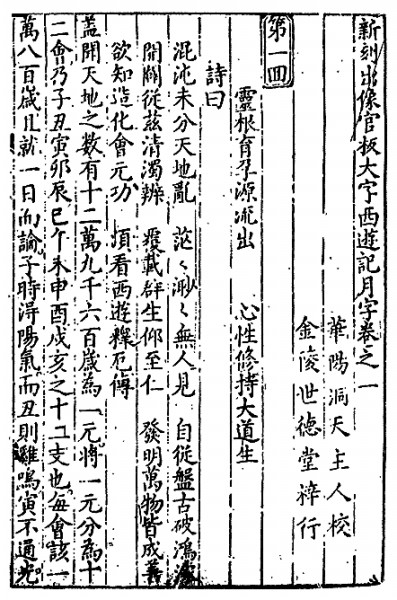 新刻出像官板大字西遊記月字卷之一
華陽洞天主人校
金陵世德堂梓行
第一回
靈根育孕源流出　心性修持大道生
詩曰
混沌未分天地亂　茫〻渺〻無人見　自從盤古破鴻濛
開闢從茲清濁辨　覆載群生仰至仁　發明萬物皆成善
欲知造化會元功　須看西遊釋厄傳
蓋聞天地之數有十二萬九千六百歲為一元將一元分為十
二會乃子丑寅卯辰巳午未申酉戌亥之十二支也每會該一
萬八百歲且就一日而論子時得陽氣而丑則雞鳴寅不通光